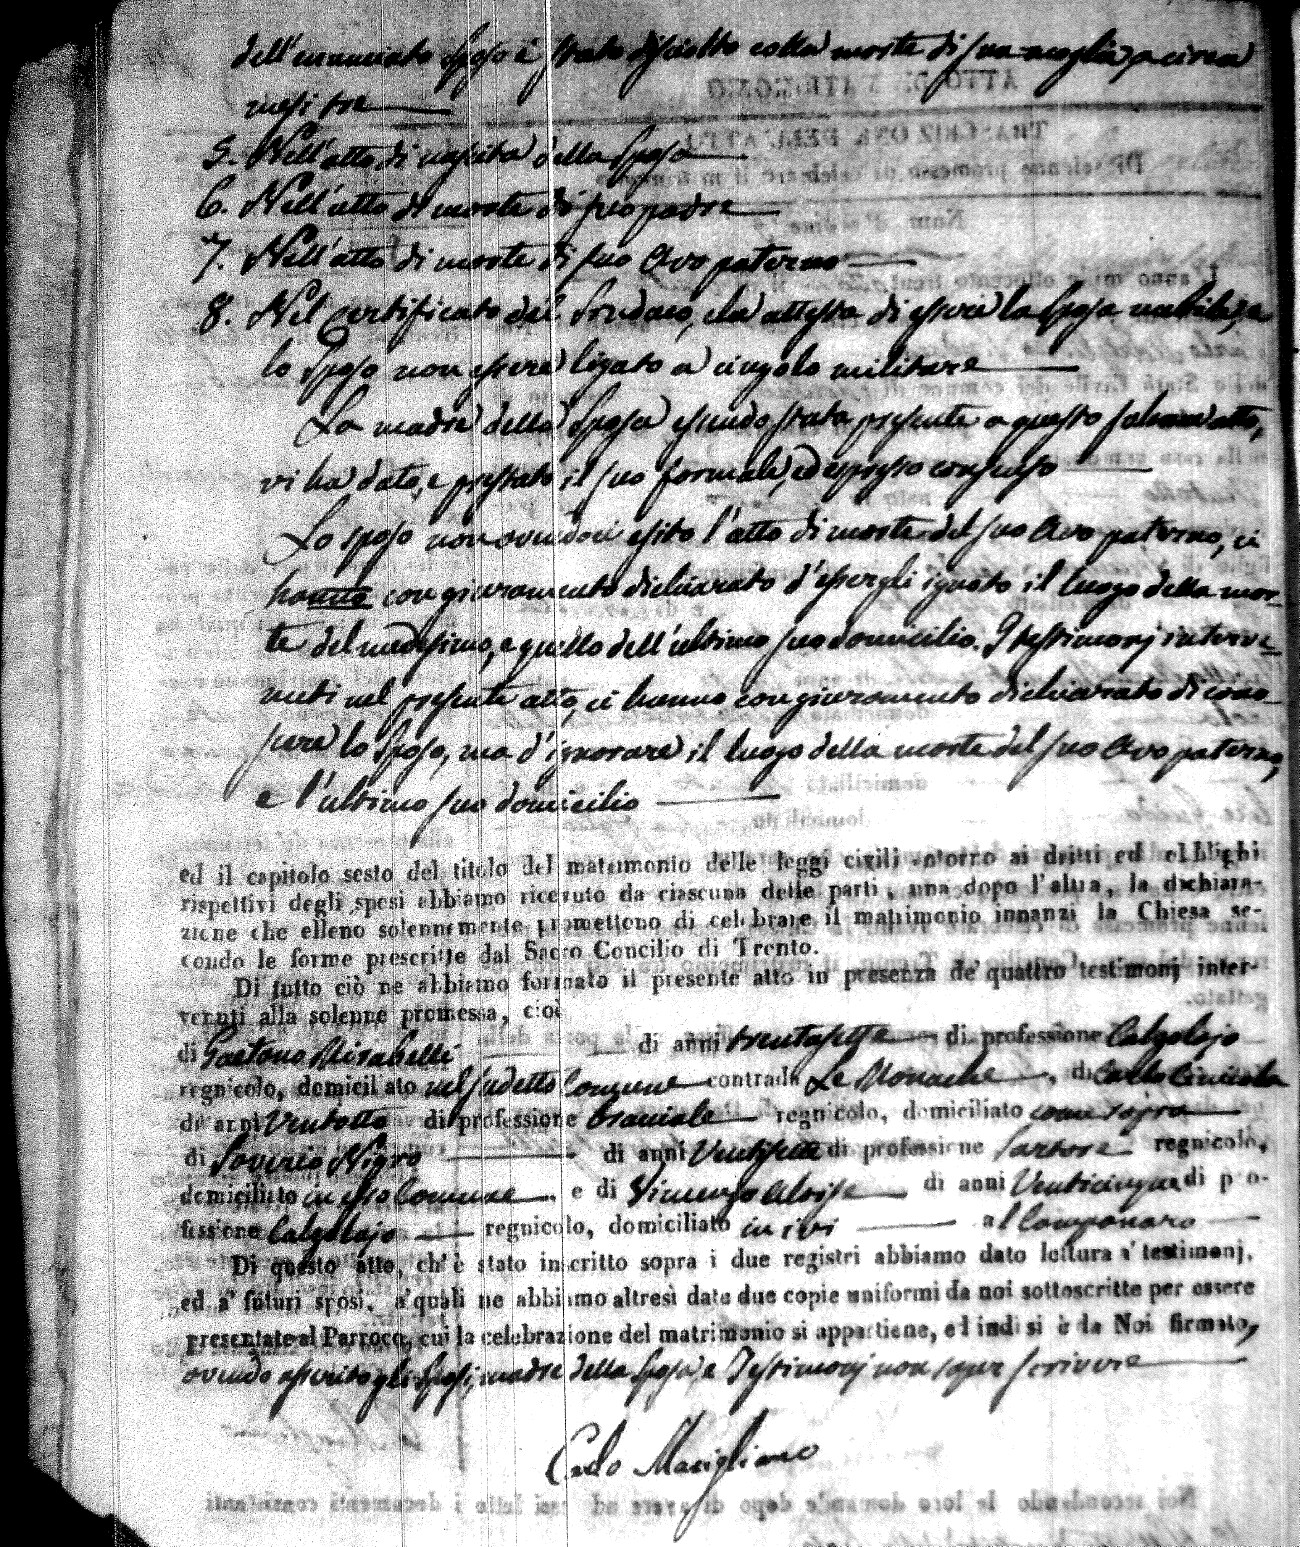 dell'enunciato sposo è stato disciolto colla morte di sua moglie, a circa
mesi tre
5. Nell'atto di nascita della Sposa
6. Nell'atto di morte di suo padre
7. Nell'atto di morte di suo Avo paterno
8. Nel Certificato del Sindaco, che attesta di essere la Sposa nubile, e
lo Sposo non essere ligato a cingolo militare
La madre della Sposa essendo stata presente a questo solenne atto,
vi ha dato, e prestato il suo formale, ed espresso consenso
Lo sposo non avendoci esito l'atto di morte del suo Avo paterno, ci
ha con giuramento dichiarato d'essergli ignoto il luogo della mor-
te del medesimo, e quello dell'ultimo suo domicilio. I testimonj interve-
nuti nel presente atto, ci hanno con giuramento dichiarato di cono-
scere lo Sposo, ma d'ignorare il luogo della morte del suo Avo paterno,
e l'ultimo suo domicilio
ed il capitolo sesto del titolo del matrimonio delle leggi civili intorno ai dritti ed obblighi
rispettivi degli sposi abbiamo ricevuto da ciascuna delle parti, una dopo l'altra, la dichiara-
zione che elleno solennemente promettono di celebrare il matrimonio innanzi la Chiesa se-
condo le forme prescritte dal Sacro Concilio di Trento.
Di tutto ciò ne abbiamo formato il presente atto in presenza de' quattro testimonj inter-
venuti alla solenne promessa, cioè
di Gaetano Mirabelli di anni trentasette di professione Calzolajo
regnicolo, domiciliato nel sudetto Comune contrada Le Monache, di Carlo
di anni Ventotto di professione Bracciale regnicolo, domiciliato come sopra
di Saverio Nigro di anni Ventisette di professione Sartore regnicolo,
domiciliato in esso Comune, e di Vincenzo Aloise di anni Venticinque di pro-
fessione Calzolajo regnicolo, domiciliato in ivi al Camponaro
Di questo atto, ch'è stato inscritto sopra i due registri abbiamo dato lettura a' testimonj,
ed a' futuri sposi, a' quali ne abbiamo altresì date due copie uniformi da noi sottoscritte per essere
presentate al Parroco, cui la celebrazione del matrimonio si appartiene, ed indi si è da Noi firmato,
avendo asserito gli Sposi, madre della Sposa, e Testimonj non saper scrivere
Carlo Macigliano